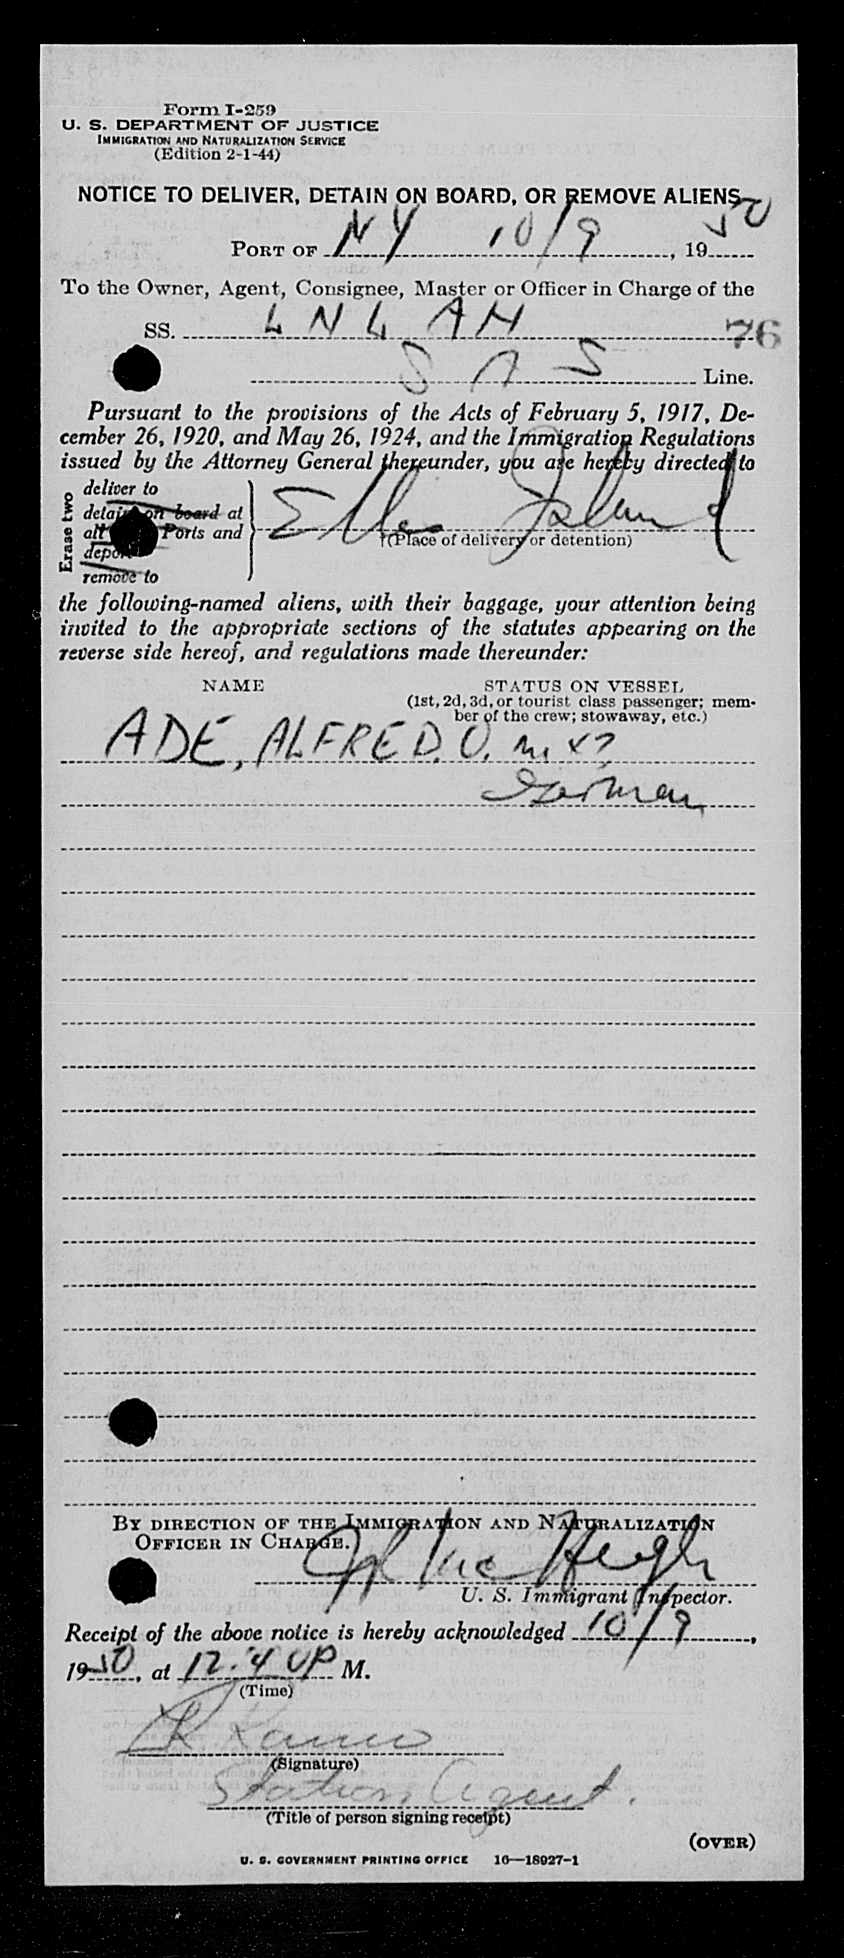 Form I-259
U. S. DEPARTMENT OF JUSTICE
IMMIGRATION AND NATURALIZATION SERVICE
(Edition 2-1-44)
NOTICE TO DELIVER, DETAIN ON BOARD, OR REMOVE ALIENS
PORT OF NY 10/9, 1950
To the Owner, Agent, Consignee, Master or Officer in Charge of the
SS. LNLAH 76
SAS Line.
Pursuant to the provisions of the Acts of February 5, 1917, De-
cember 26, 1920, and May 26, 1924, and the Immigration Regulations
issued by the Attorney General thereunder, you are hereby directed to
Erase two
deliver to
detain on board at
all Ports and
deport
remove to
Ellis Island
†(Place of delivery or detention)
the following-named aliens, with their baggage, your attention being
invited to the appropriate sections of the statutes appearing on the
reverse side hereof, and regulations made thereunder:
NAME STATUS ON VESSEL
(1st, 2d, 3d, or tourist class passenger; mem-
ber of the crew; stowaway, etc.)
ADE, ALFRED. O. m
German
BY DIRECTION OF THE IMMIGRATION AND NATURALIZATION
OFFICER IN CHARGE.
U. S. Immigrant Inspector.
Receipt of the above notice is hereby acknowledged 10/9,
1950, at 12.40 P M.
(Time)
(Signature)
Station Agent.
(Title of person signing receipt)
(OVER)
U. S. GOVERNMENT PRINTING OFFICE 16—18927-1